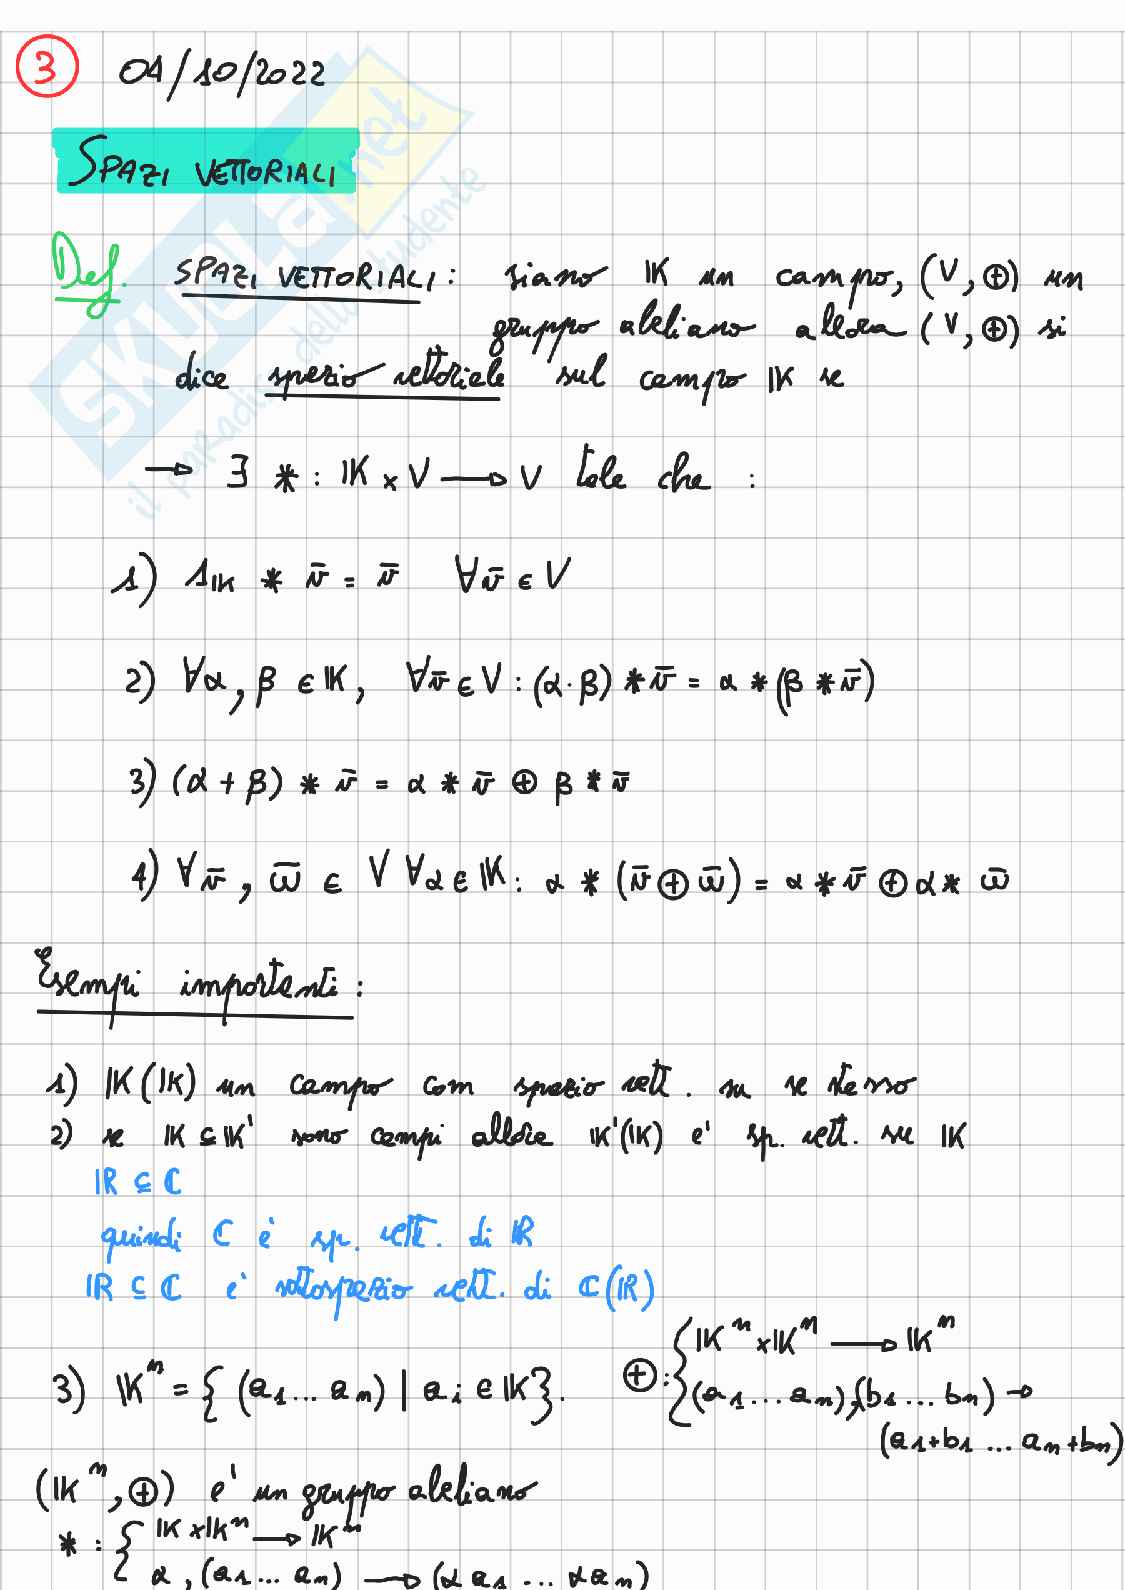 3 04/10/2022
SPAZI VETTORIALI
Def. SPAZI VETTORIALI: siano 𝕂 un campo, (V, ⊕) un
gruppo abeliano allora (V, ⊕) si
dice spazio vettoriale sul campo 𝕂 se
→ ∃ * : 𝕂 × V → V tale che :
1) 1𝕂 * v̄ = v̄ ∀v̄ ∈ V
2) ∀α, β ∈ 𝕂, ∀v̄ ∈ V : (α · β) * v̄ = α * (β * v̄)
3) (α + β) * v̄ = α * v̄ ⊕ β * v̄
4) ∀v̄, w̄ ∈ V ∀α ∈ 𝕂 : α * (v̄ ⊕ w̄) = α * v̄ ⊕ α * w̄
Esempi importanti :
1) 𝕂(𝕂) un campo com spazio vett. su se stesso
2) se 𝕂 ⊆ 𝕂' sono campi allora 𝕂'(𝕂) e' sp. vett. su 𝕂
ℝ ⊆ ℂ
quindi ℂ è sp. vett. di ℝ
ℝ ⊆ ℂ e' sottospazio vett. di ℂ(ℝ)
3) 𝕂ⁿ = { (a₁ ... aₙ) | aᵢ ∈ 𝕂 }. ⊕ : { 𝕂ⁿ × 𝕂ⁿ → 𝕂ⁿ
(a₁ ... aₙ), (b₁ ... bₙ) →
(a₁+b₁ ... aₙ+bₙ)
(𝕂ⁿ, ⊕) e' un gruppo abeliano
* : { 𝕂 × 𝕂ⁿ → 𝕂ⁿ
α, (a₁ ... aₙ) → (α a₁ ... α aₙ)
SKUOLA.net
il paradiso dello studente